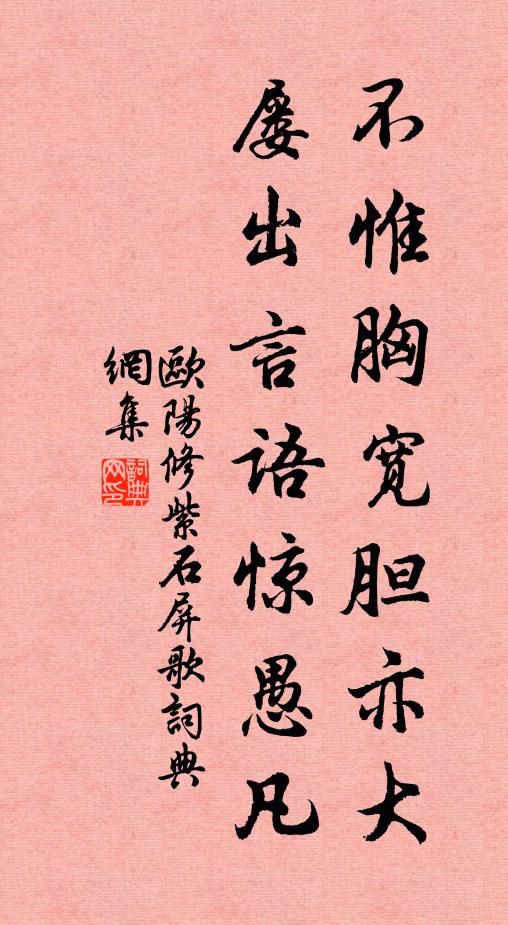 不惟胸宽胆亦大
屡出言语惊愚凡
歐陽修紫石屏歌詞典
網集
詞典
网印